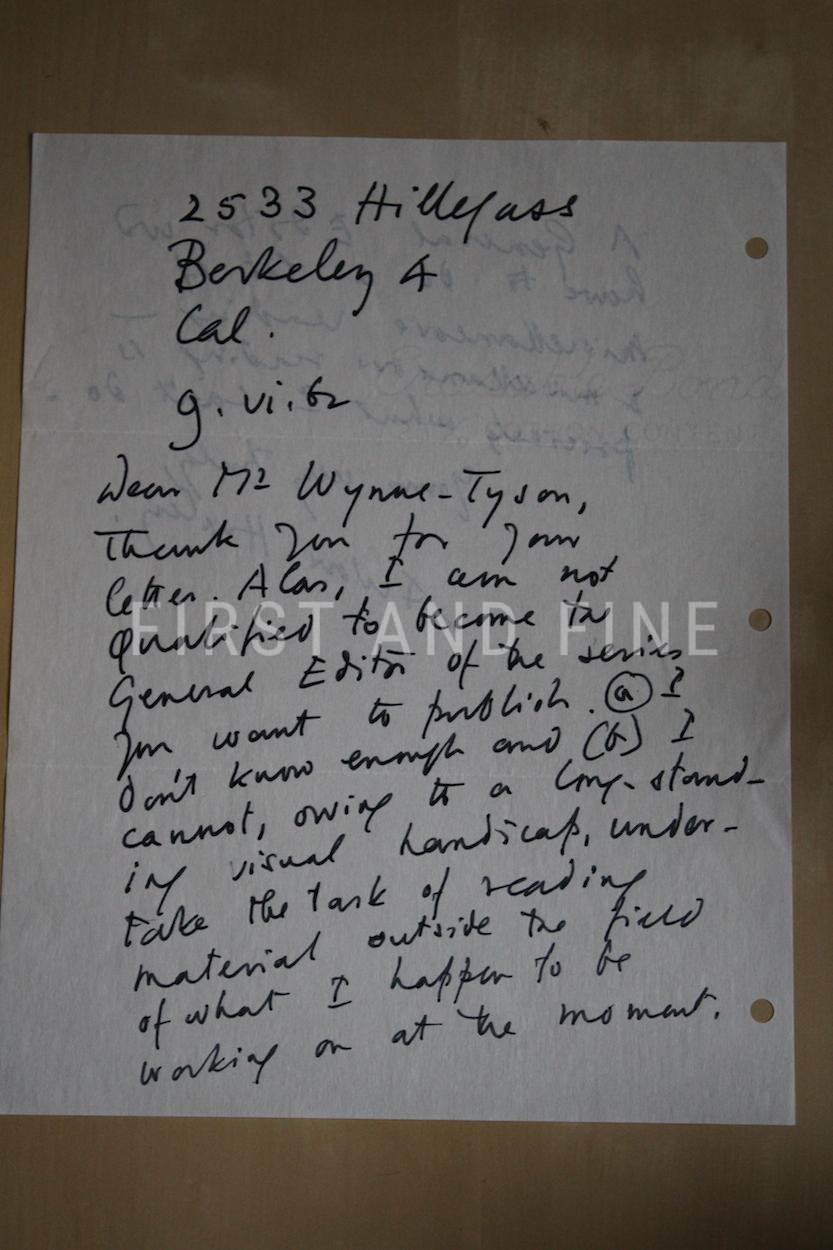 2533 Hillegass
Berkeley 4
Cal.
9.vi.62
Dear Mr Wynne-Tyson,
Thank you for your
letter. Alas, I am not
qualified to become the
General Editor of the series
you want to publish. (a) I
don't know enough and (b) I
cannot, owing to a long-stand-
ing visual handicap, under-
take the task of reading
material outside the field
of what I happen to be
working on at the moment.
FIRST AND FINE